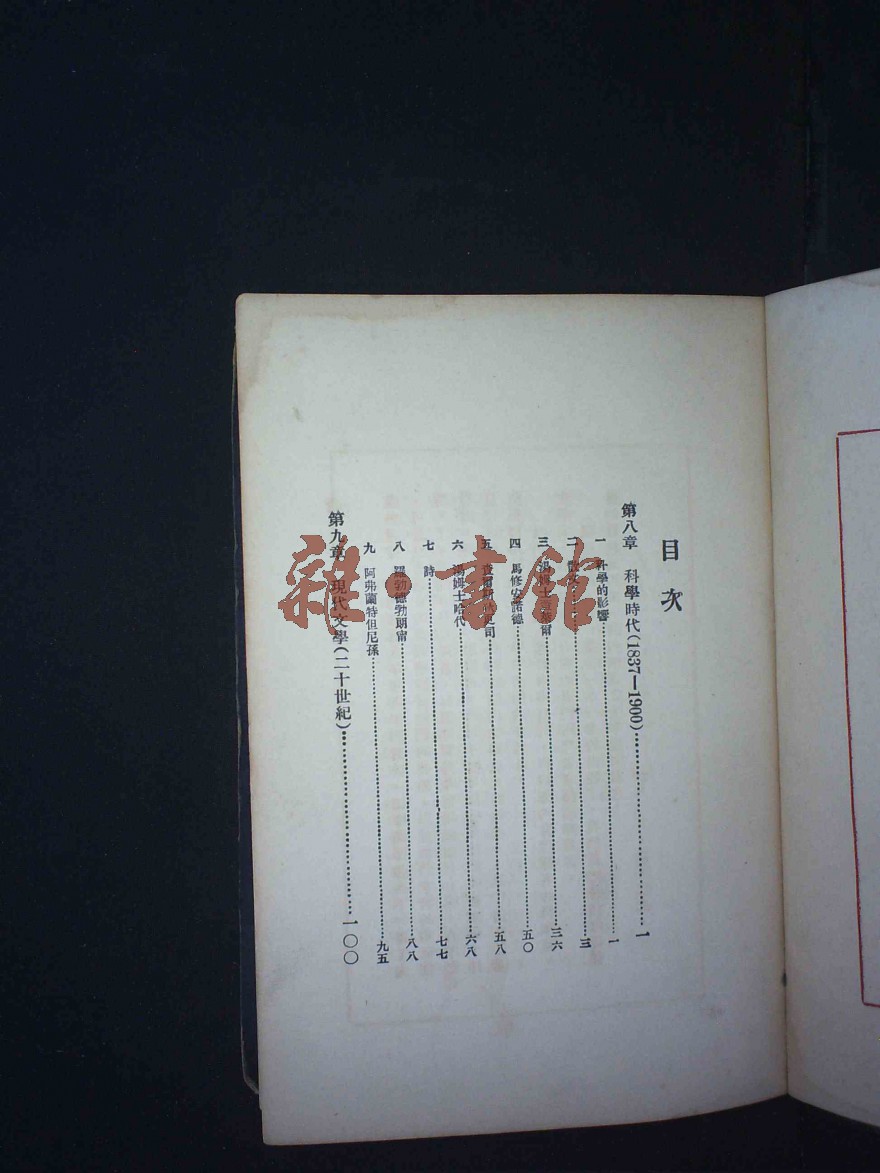 目次
第八章 科學時代(1837—1900)…………一
一 科學的影響…………一
二 散文…………三
三 湯姆士喀萊爾…………三六
四 馬修安諾德…………五〇
五 查爾斯…司…………五八
六 湯姆士哈代…………六八
七 詩…………七七
八 羅勃德勃朗甯…………八八
九 阿弗蘭特但尼孫…………九五
第九章 現代文學(二十世紀)…………一〇〇
雜·書館